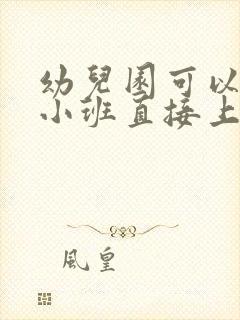 幼兒園可以
小班直接上
風皇